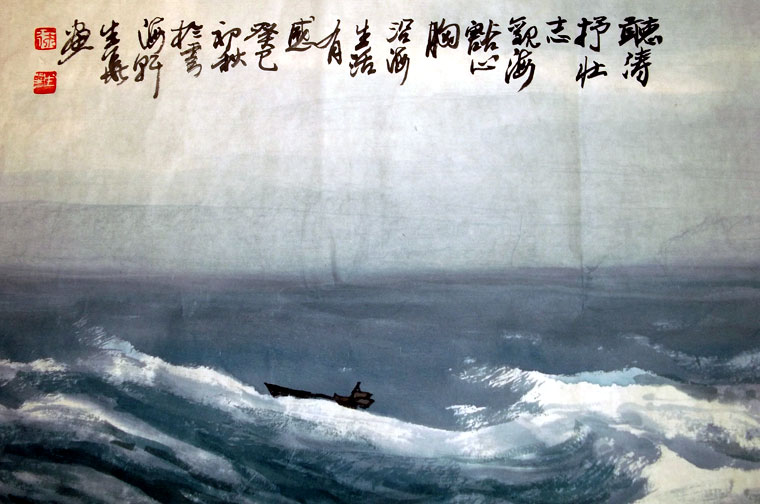 聽濤
抒壯
志
觀海
豁心
胸
沿海
生活
有
感
癸巳
初秋
於雲
海軒
生華
畫